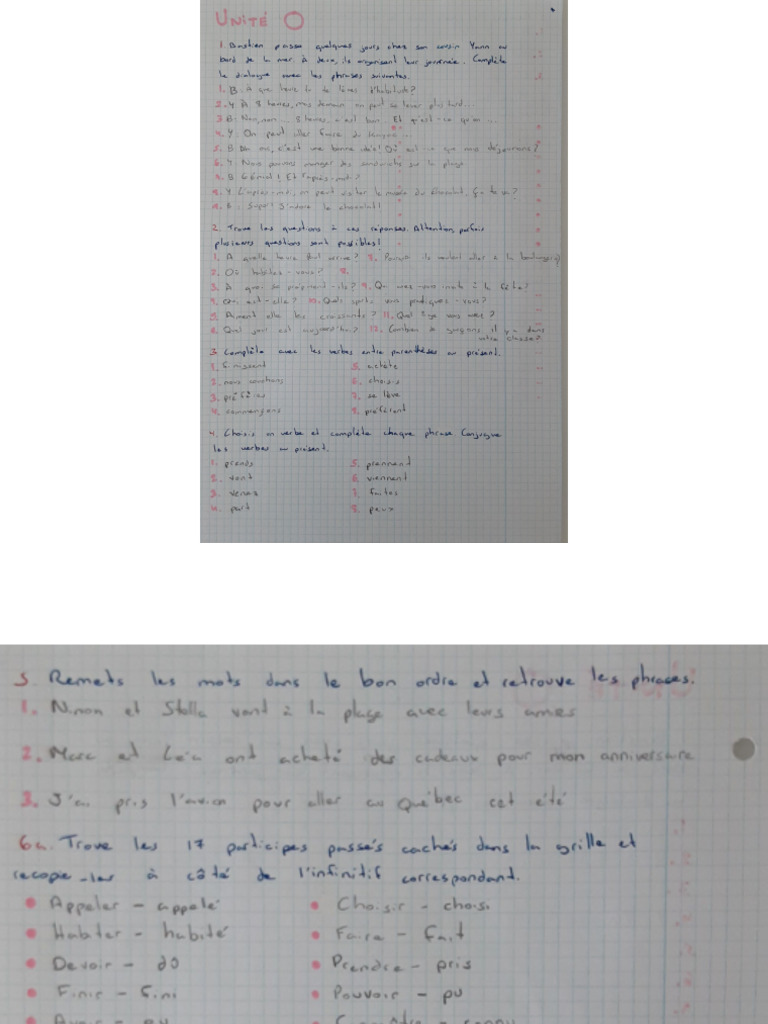 UNITÉ 0
1. Bastien passe quelques jours chez son cousin Yann au
bord de la mer à deux, ils organisent leur journée. Complète
le dialogue avec les phrases suivantes.
1. B: À que heure tu te lèves d'habitude?
2. Y: À 8 heures, mais demain on peut se lever plus tard...
3. B: Non, non... 8 heures, c'est bon. Et qu'est-ce qu'on ...
4. Y: On peut aller faire du
5. B: c'est une bonne idée! Où est-ce que nous déjeunons?
6. Y: Nous pouvons manger des sandwichs sur la plage
7. B: Génial! Et l'après-midi?
8. Y: L'après-midi, on peut visiter le musée du chocolat, ça te va?
9. B: Super! J'adore le chocolat!
2. Trove les questions à ces réponses. Attention, parfois
plusieurs questions sont possibles!
1. A quelle heure arrive? 7. ils veulent aller à la boulangerie?
2. Où habitez-vous? 8.
3. A quoi se préparent-ils? 9. Qui avez-vous invité à la fête?
4. Qui est-elle? 10. Quels sports vous pratiquez-vous?
5. Aiment elle les croissants? 11. Quel âge vous avez?
6. Quel jour est aujourd'hui? 12. Combien de garçons il y a dans
votre classe?
3. Complète avec les verbes entre parenthèses au présent.
1. finissent 5. achète
2. nous 6. choisis
3. préfères 7. se lève
4. commençons 8. préfèrent
4. Choisis un verbe et complète chaque phrase. Conjugue
les verbes au présent.
1. prends 5. prennent
2. vont 6. viennent
3. venez 7. faites
4. part 8. peux
5. Remets les mots dans le bon ordre et retrouve les phrases.
1. Ninon et Stella vont à la plage avec leurs amies
2. Marc et Léa ont acheté des cadeaux pour mon anniversaire
3. J'ai pris l'avion pour aller au Québec cet été
6a. Trove les 17 participes passés cachés dans la grille et
recopie-les à côté de l'infinitif correspondant.
Appeler - appelé Choisir - choisi
Habiter - habité Faire - fait
Devoir - dû Prendre - pris
Finir - fini Pouvoir - pu